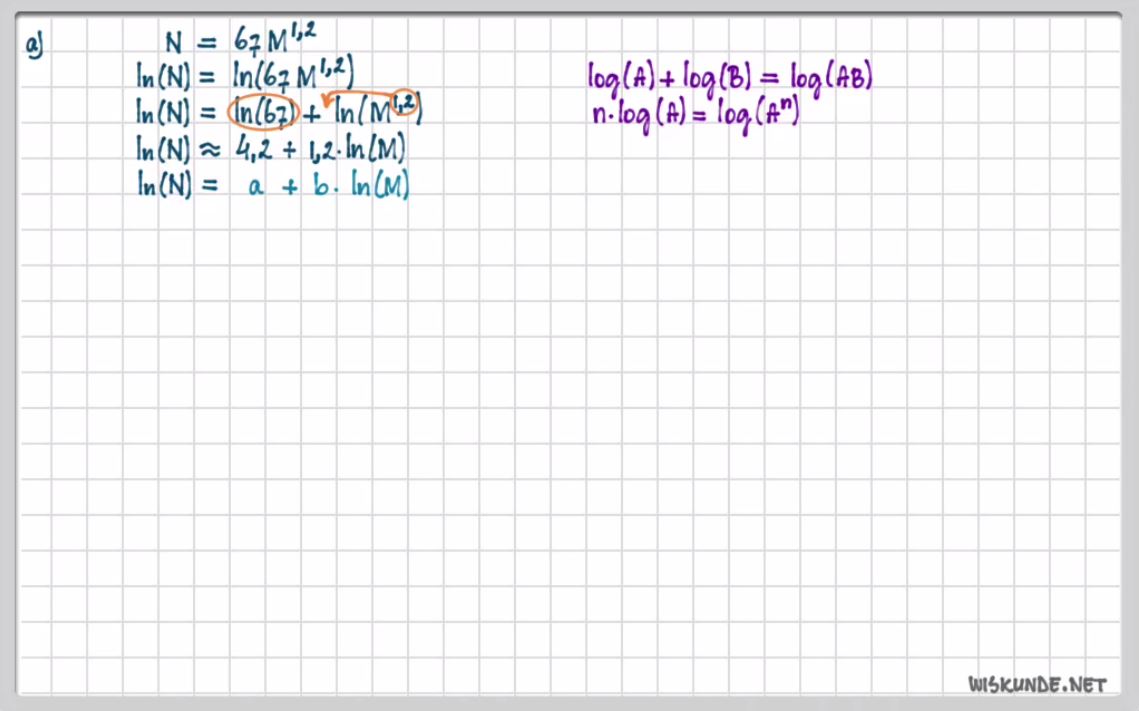 a) N = 67M^1,2
ln(N) = ln(67M^1,2)
ln(N) = ln(67) + ln(M^1,2)
ln(N) ≈ 4,2 + 1,2·ln(M)
ln(N) = a + b·ln(M)
log(A) + log(B) = log(AB)
n·log(A) = log(A^n)
WISKUNDE.NET